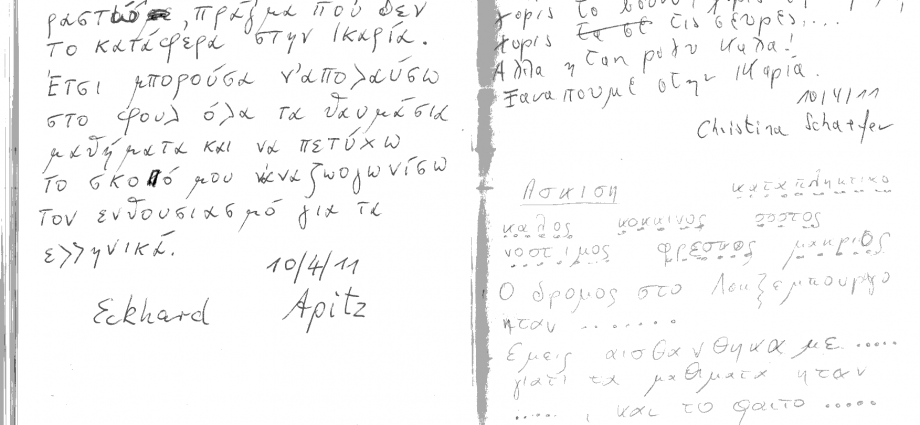 πράγμα που δεν
το κατάφερα στην Ικαρία.
Έτσι μπορούσα ν'απολαύσω
στο φουλ όλα τα θαυμάσια
μαθήματα και να πετύχω
το σκοπό μου να ζωογωνίσω
τον ενθουσιασμό για τα
ελληνικά.
10/4/11
Eckhard Apitz
χορις τις
Αλλα η ταν πολυ καλα!
Ξαναπουμε στην Ικαρία.
10/4/11
Christina Schaefer
Ασκιση
καταπληκτικο
καλος κοκκινος ζεστος
νοστιμος φρεσκος μακριος
Ο δρομος στο Λουξεμπουργο
ηταν ........
Εμεις αισθανθηκαμε .....
γιατι τα μαθιματα ηταν
....., και το φαιτο .....